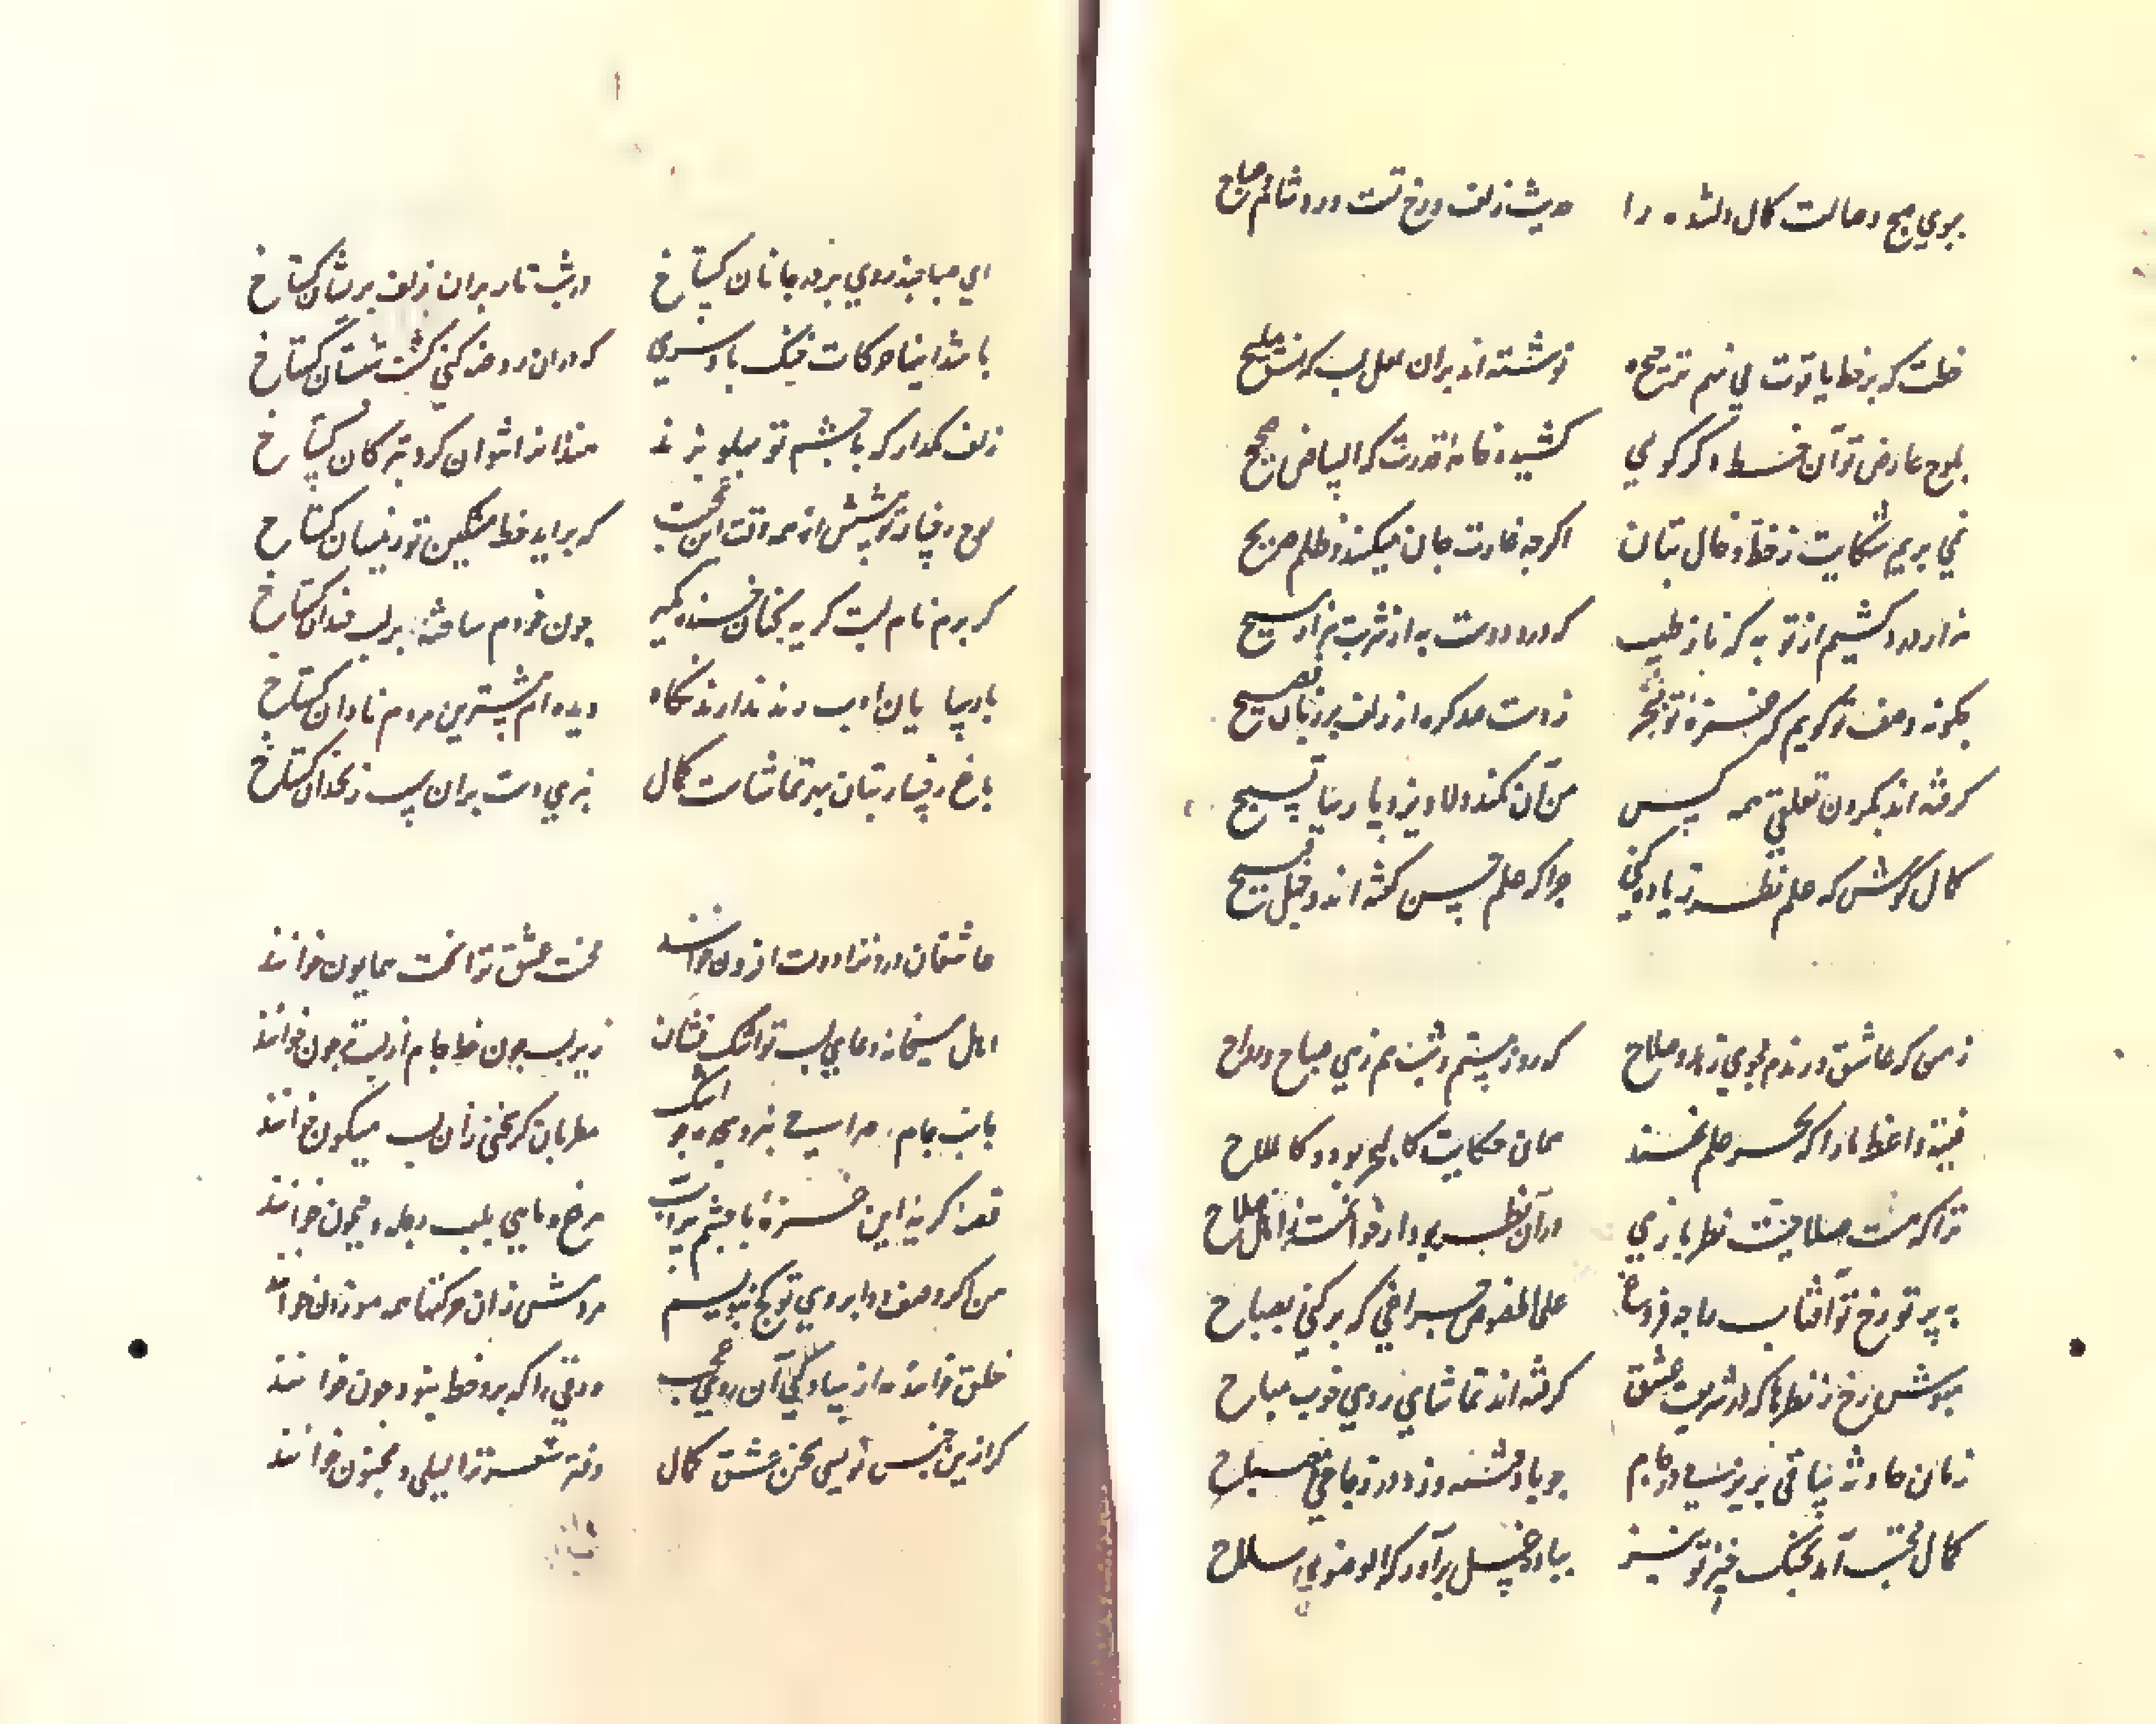 ببوی صبح وصالت کمال دلشده را حدیث زلف و رخ تست ورد شام و صباح
خطت که بر خط یاقوت می نهد ترجیح نوشته اند بران لعل لب که انت ملیح
بلوح عارض تو آن خط ار کوئی کشیده خامه قدرت کرا لبیاض صحیح
نمی بریم شکایت ز خط و خال بتان اگر چه غارت جان میکنند و ظلم صریح
هزار درد کشیم از تو به که ناز طبیب که درد دوست به از شربت هزار مسیح
چگونه وصف تو گویم که غمزه تو بسحر ز دست صد گره از زلف بر زبان فصیح
گرفته اند بگردن تعلقی همه کس من آن کمند دلاویز و پارسا تسبیح
کمال کوش که علم نظر زیاده کنی چرا که علم حسن گفته اند و جهل قبیح
زمن که عاشق و رندم مجوی زهد و صلاح که روز مستم و شب هم زهی صباح و رواح
فقیه و واعظ ما را که بحر علم نهند همان حکایت کالبحر بود و کالملاح
ترا که نیست صلاحیت نظر بازی در آن نظر بود ار خوانمت ز اهل صلاح
به پرتو رخ تو آفتاب را چه فروغ علی الخصوص چراغی که بر کنی بصباح
مپوش رخ ز نظرها که در شریعت عشق گرفته اند تماشای روی خوب مباح
زمان حادثه ساقی بریز می در جام چو باد فتنه وزد در زجاجه نه مصباح
کمال محتسب آمد بجنگ خیز تو نیز بیا و خسل برآور که الوضوء سلاح
ای صبا چند روی بر در جانان گستاخ در شب تار بران زلف پریشان گستاخ
با شد اینها حرکات خنک باد سری که دران روضه کنی گشت شبستان گستاخ
زلف مگذار که با چشم تو پهلو بزند هندوانرا نتوان کرد به ترکان گستاخ
می رخسار تو پیش از همه وقت این نیست که براید خط مشکین تو زینسان گستاخ
گر برم نام لبت گریه کنان خنده مگیر چون خودم ساخته بر لب خندان گستاخ
پارسایان ادب رند ندارند نگاه دیده ام بیشترین مردم نادان گستاخ
باغ رخسار بتان بهر تماشاست کمال نبری دست بران سیب زنخدان گستاخ
عاشقان درد ترا دولت افزون خوانند محنت عشق ترا بخت همایون خوانند
اهل میخانه دعای لب تو اشک فشان زیر لب چون خط جام از لب چون خوانند
با لب جام مرا بزد بوجه اشک مطربان گر سخنی زان لب میگون خوانند
قصه گریه این خسته با چشم پر آب مرغ و ماهی بلب دجله و جیحون خوانند
من اگر وصف دو ابروی تو کج بنویسم مردمش زان حرکتها همه موزون خوانند
خلق خوانده از سادگی آن روی عجب ورقی را که برو خط نبود چون خوانند
گر ازین جنس نویسی سخن عشق کمال دفتر شعر ترا لیلی و مجنون خوانند